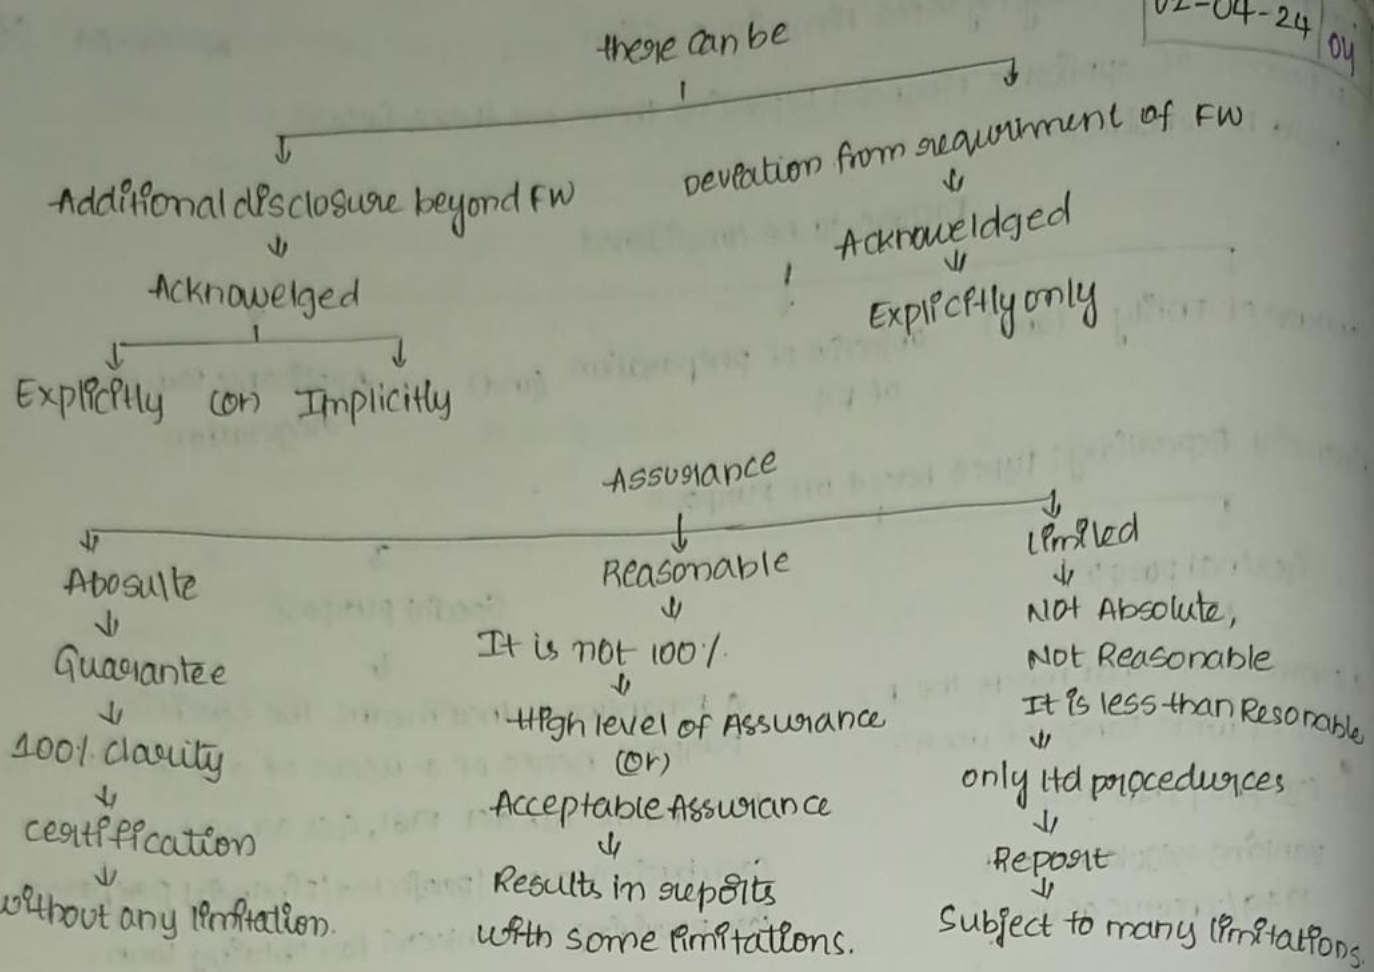 02-04-24
04
there can be
Additional disclosure beyond FW
Deviation from requirment of FW.
Acknowelged
Acknoweldged
Explicitly only
Explicitly (or) Implicitly
Assurance
Abosulte
Guarantee
100% clarity
certification
without any limitation.
Reasonable
It is not 100%.
High level of Assurance
(or)
Acceptable Assurance
Results in reports
with some limitations.
limited
Not Absolute,
Not Reasonable
It is less than Resonable
only ltd procedurces
Report
Subject to many limitations.